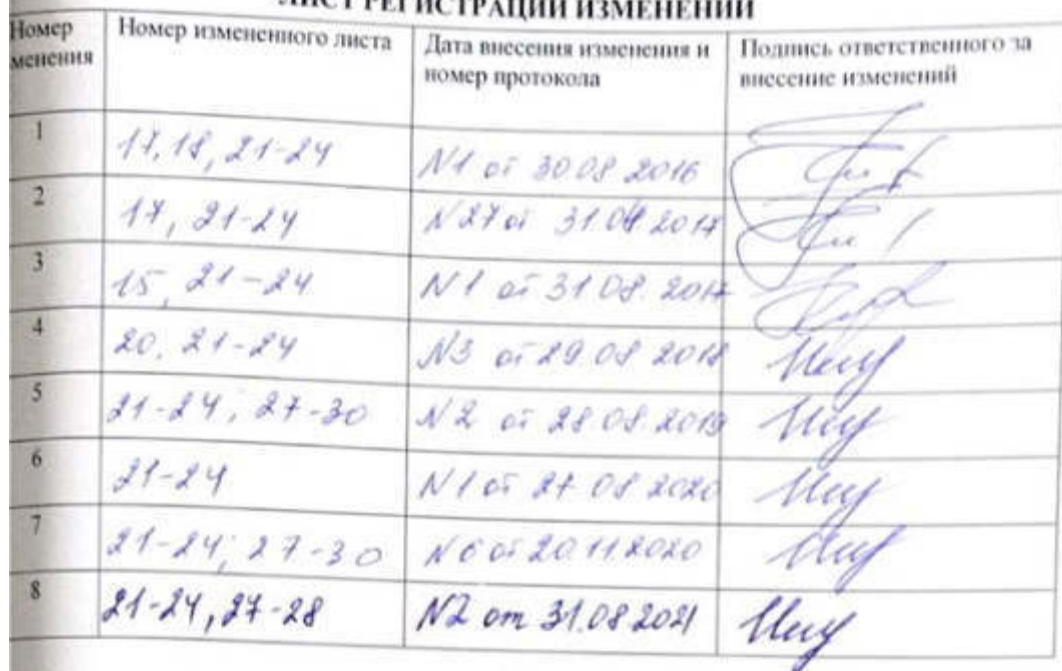 ЛИСТ РЕГИСТРАЦИИ ИЗМЕНЕНИЙ
Номер
менения
Номер измененного листа
Дата внесения изменения и
номер протокола
Подпись ответственного за
внесение изменений
1
17, 18, 21-24
N1 от 30.08 2016
2
17, 21-24
N27 от 2017
3
15, 21-24
N1 от 31.08. 2017
4
20, 21-24
N3 от 29.08 2018
5
21-24, 27-30
N2 от 28.08.2019
6
21-24
N1 от 27 08 2020
7
21-24; 27-30
N6 от 20.11.2020
8
21-24, 27-28
N2 от 31.08 2021